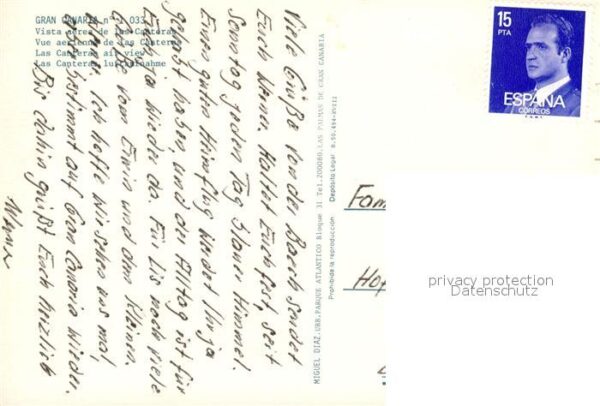 GRAN CANARIA nº 033
Vista aerea de las Canteras
Vue aerienne de las Canteras
Las Canteras air view
Las Canteras luftaufnahme
Viele Grüße von der Beach sendet
Euch Hanne. Haltet Euch fest, seit
Sonntag jeden Tag blauer Himmel.
Einen guten Hinflug werdet Ihr ja
gehabt haben und der Alltag ist für
Euch ja wieder da. Für Lis noch viele
Grüße vom Erwin und dem Kleinen.
Ich hoffe wir sehen uns mal,
bestimmt auf Gran Canaria wieder.
Bis dahin grüßt Euch herzlich
MIGUEL DIAZ.URB.PARQUE ATLANTICO Bloque 31 Tel.200080.LAS PALMAS DE GRAN CANARIA
Prohibida la reproducción Depósito Legal B.50.494-XVIII
15
PTA
ESPAÑA
CORREOS
Fam
Hof
privacy protection
Datenschutz